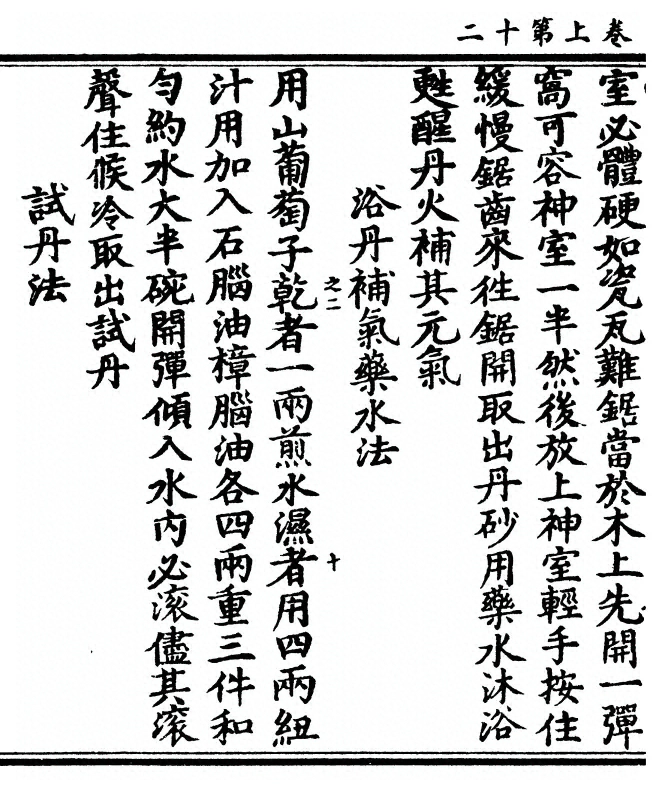 卷上第十二
室必體硬如瓷瓦難鋸當於木上先開一彈
窩可容神室一半然後放上神室輕手按住
緩慢鋸齒來徃鋸開取出丹砂用藥水沐浴
甦醒丹火補其元氣
浴丹補氣藥水法
之二
用山葡萄子乾者一兩煎水濕者用四兩紐
十
汁用加入石腦油樟腦油各四兩重三件和
勻約水大半碗開彈傾入水內必滚儘其滚
聲住候冷取出試丹
試丹法